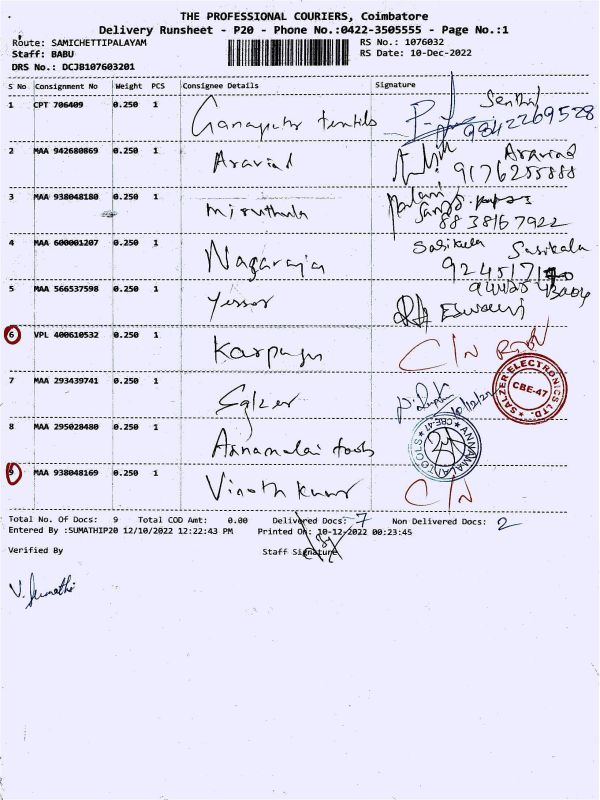 THE PROFESSIONAL COURIERS, Coimbatore
Delivery Runsheet - P20 - Phone No.:0422-3505555 - Page No.:1
Route: SAMICHETTIPALAYAM RS No.: 1076032
Staff: BABU RS Date: 10-Dec-2022
DRS No.: DCJB107603201
S No Consignment No Weight PCS Consignee Details Signature
1 CPT 706409 0.250 1 Ganapathy textiles Senthil
9842269528
2 MAA 942680869 0.250 1 Aravind Aravind
9176255888
3 MAA 938048180 0.250 1 Miruthula
8838167922
4 MAA 600001207 0.250 1 Nagaraja Sasikala Sasikala
5 MAA 566537598 0.250 1 Yessor Eswari
6 VPL 400610532 0.250 1 C/N
7 MAA 293439741 0.250 1 Salzer 10/12/22
SALZER ELECTRONICS LTD. CBE-47
8 MAA 295028480 0.250 1 Annamalai tools
ANNAMALAI TOOLS CBE-47
9 MAA 938048169 0.250 1 Vinoth kumar C/N
Total No. Of Docs: 9 Total COD Amt: 0.00 Delivered Docs: 7 Non Delivered Docs: 2
Entered By :SUMATHIP20 12/10/2022 12:22:43 PM Printed On: 10-12-2022 00:23:45
Verified By Staff Signature
V. Sumathi